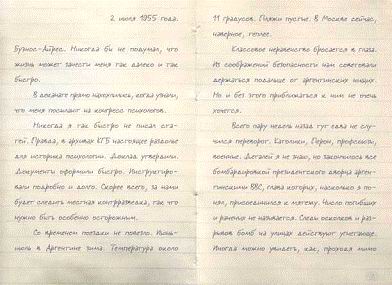 2 июля 1955 года.
Буэнос-Айрес. Никогда бы не подумал, что
жизнь может занести меня так далеко и так
быстро.
В деканате прямо нахохлились, когда узнали,
что меня посылают на конгресс психологов.
Никогда я так быстро не писал ста-
тей. Правда, в архивах КГБ настоящее раздолье
для историка психологии. Доклад утвердили.
Документы оформили быстро. Инструктиро-
вали подробно и долго. Скорее всего, за нами
будет следить местная контрразведка, так что
нужно быть особенно осторожным.
Со временем поездки не повезло. Июнь-
июль в Аргентине зима. Температура около
11 градусов. Пляжи пустые. В Москве сейчас,
наверное, теплее.
Классовое неравенство бросается в глаза.
Из соображений безопасности нам советовали
держаться подальше от аргентинских нищих.
Но и без этого приближаться к ним не очень
хочется.
Всего пару недель назад тут едва не слу-
чился переворот. Католики, Перон, профсоюзы,
военные. Деталей я не знаю, но закончилось все
бомбардировкой президентского дворца арген-
тинскими ВВС, глава которых, насколько я по-
нял, присоединился к мятежу. Число погибших
и раненых не называется. Следы осколков и раз-
рывов бомб на улицах действуют угнетающе.
Иногда можно увидеть, как, проходя мимо